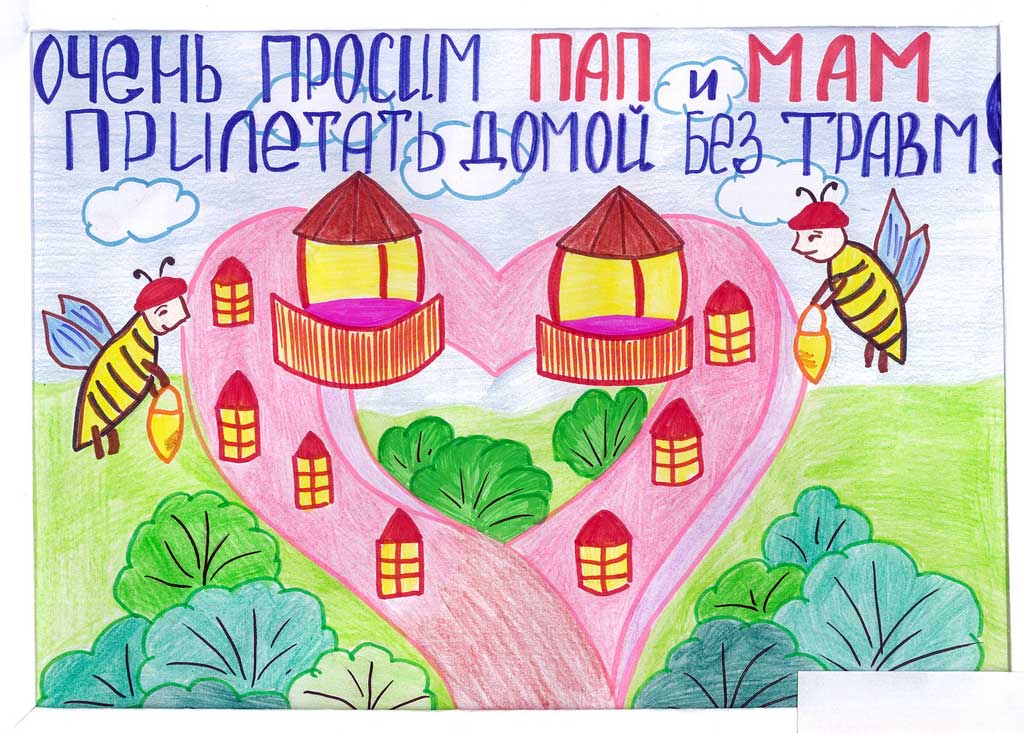 ОЧЕНЬ ПРОСИМ ПАП и МАМ
ПРИЛЕТАТЬ ДОМОЙ БЕЗ ТРАВМ!